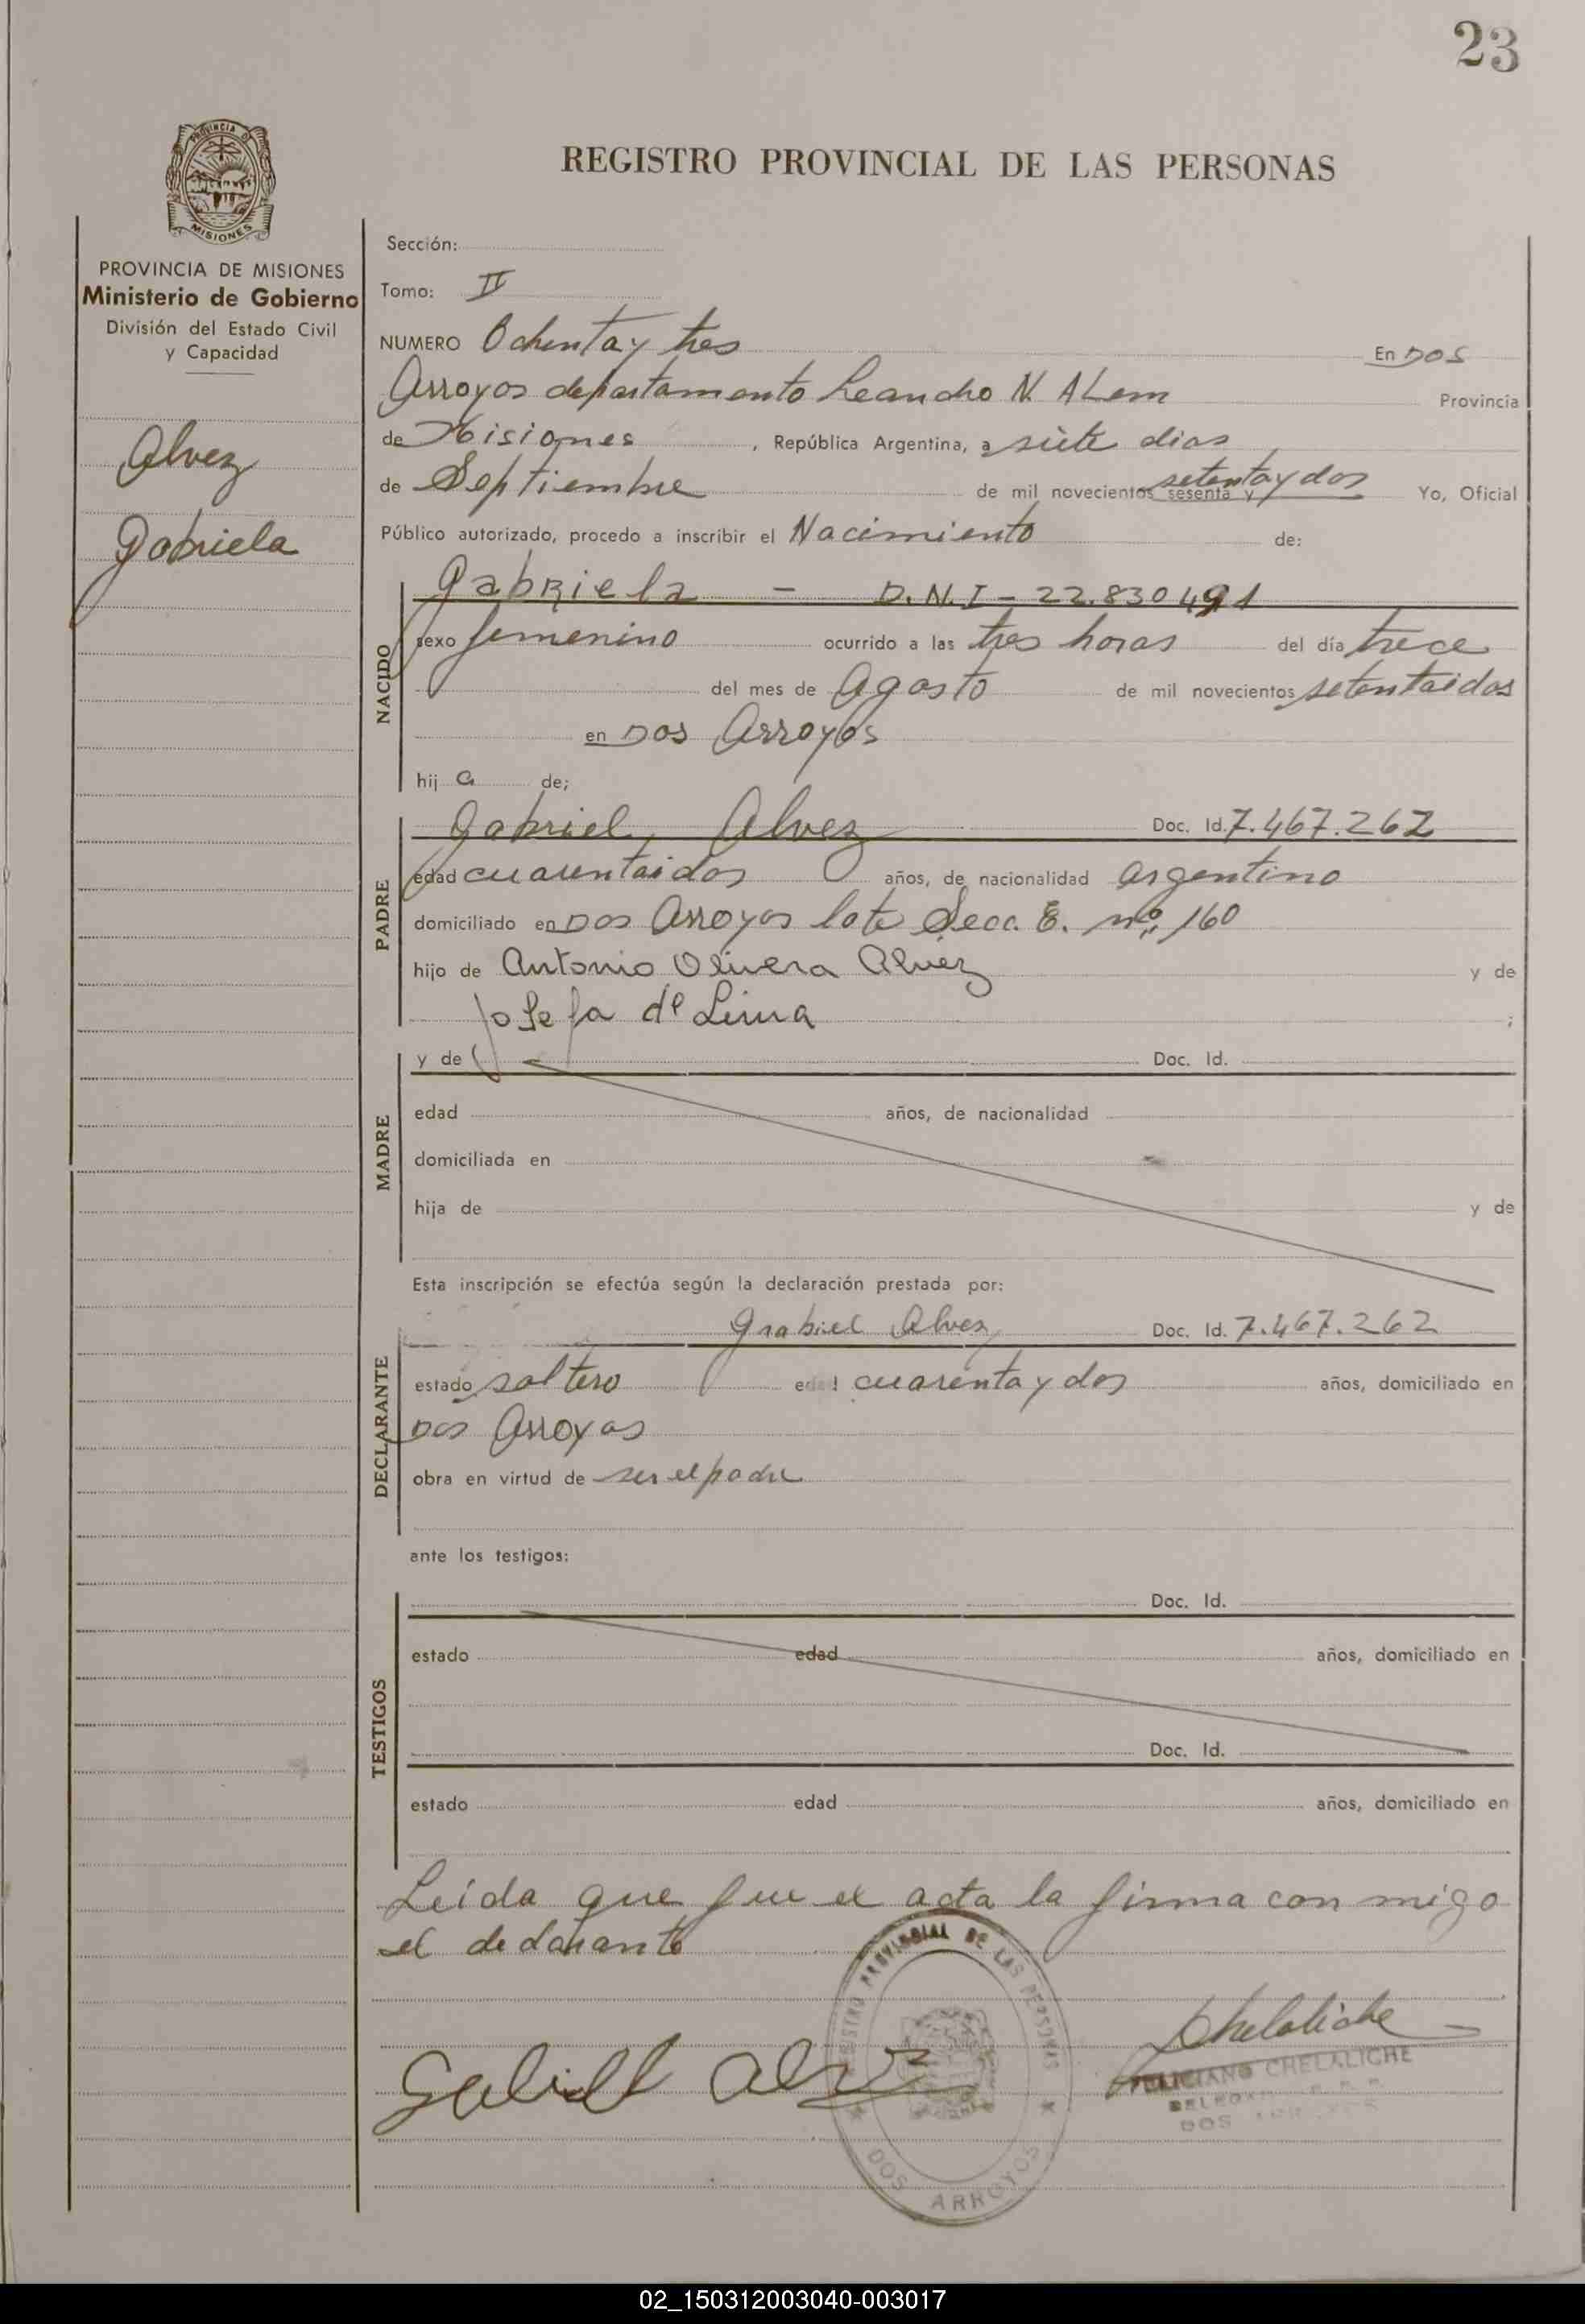 23
PROVINCIA DE
MISIONES
REGISTRO PROVINCIAL DE LAS PERSONAS
PROVINCIA DE MISIONES
Ministerio de Gobierno
División del Estado Civil
y Capacidad
Alvez
Gabriela
Sección:
Tomo: II
NUMERO Ochenta y tres En DOS
Arroyos departamento Leandro N. ALem Provincia
de Misiones , República Argentina, a siete dias
de Septiembre de mil novecientos sesenta y setenta y dos Yo, Oficial
Público autorizado, procedo a inscribir el Nacimiento de:
NACIDO
Gabriela - D.N.I - 22.830491
sexo femenino ocurrido a las tres horas del día trece
del mes de Agosto de mil novecientos setentaidos
en DOS Arroyos
hij a de;
PADRE
Gabriel Alvez Doc. Id. 7.467.262
edad cuarentaidos años, de nacionalidad argentino
domiciliado en Dos Arroyos lote Secc. E. nº 160
hijo de Antonio Olivera Alvez y de
Josefa de Lima ;
MADRE
y de Doc. Id.
edad años, de nacionalidad
domiciliada en
hija de y de
Esta inscripción se efectúa según la declaración prestada por:
DECLARANTE
Grabiel Alvez Doc. Id. 7.467.262
estado soltero edad cuarenta y dos años, domiciliado en
Dos Arroyos
obra en virtud de ser el padre
ante los testigos:
TESTIGOS
Doc. Id.
estado edad años, domiciliado en
Doc. Id.
estado edad años, domiciliado en
Leida que fue el acta la firma con migo
el declarante
REGISTRO PROVINCIAL DE LAS PERSONAS
DOS ARROYOS
Chelaliche
FELICIANO CHELALICHE
DOS ARROYOS
02_150312003040-003017